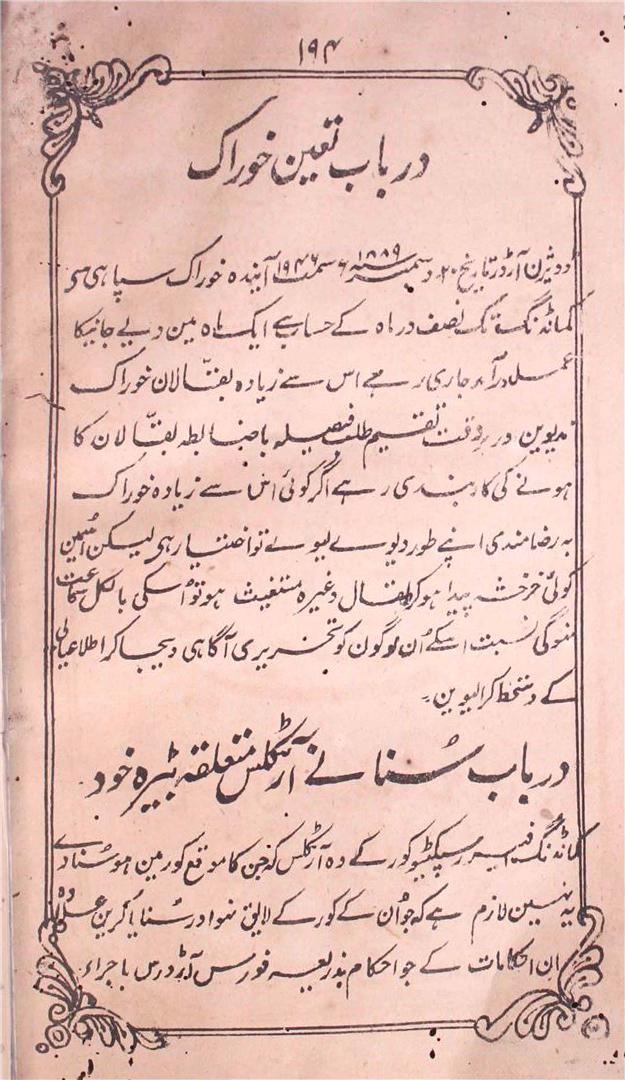 ۱۹۴
در باب تعین خوراک
دویژن آرڈر تاریخ ۲۰ دسمبر سنہ ۱۸۸۹ء سمت ۱۹۴۶ آیندہ خوراک سپاہی سے
کمانڈنگ تک نصف در ماہ کے حساب سے ایک ماہ مین دیے جانیکا
عملدرآمد جاری رہے اس سے زیادہ بقّالان خوراک
ندیوین در بوقت تقسیم طلب فیصلہ باضابطہ بقّالان کا
ہونے کی کاربندی رہے اگر کوئی اس سے زیادہ خوراک
بہ رضامندی اپنے طور دیوے لیوے تو اختیار رہی لیکن اسمین
کوئی خرخشہ پیدا ہوکر بقال وغیرہ مستغیث ہو تو اُسکی بالکل سماعت
نہوگی نسبت اسکے اُن لوگون کو تحریری آگاہی دیجا کر اطلاعیابی
کے دستخط کرا لیوین۔
در باب سُنانے آرٹکلس متعلقہ بٹیرہ خود
کمانڈنگ افیسر رسپکٹیو کور کے وہ آرٹکلس کہ جن کا موقع کور مین ہو سُنادے
یہ نہین لازم ہے کہ جو اُن کے کور کے لایق نہو اور سُنایا کرین علاوہ
ان احکامات کے جو احکام بذریعہ فورس آرڈرس باجراء